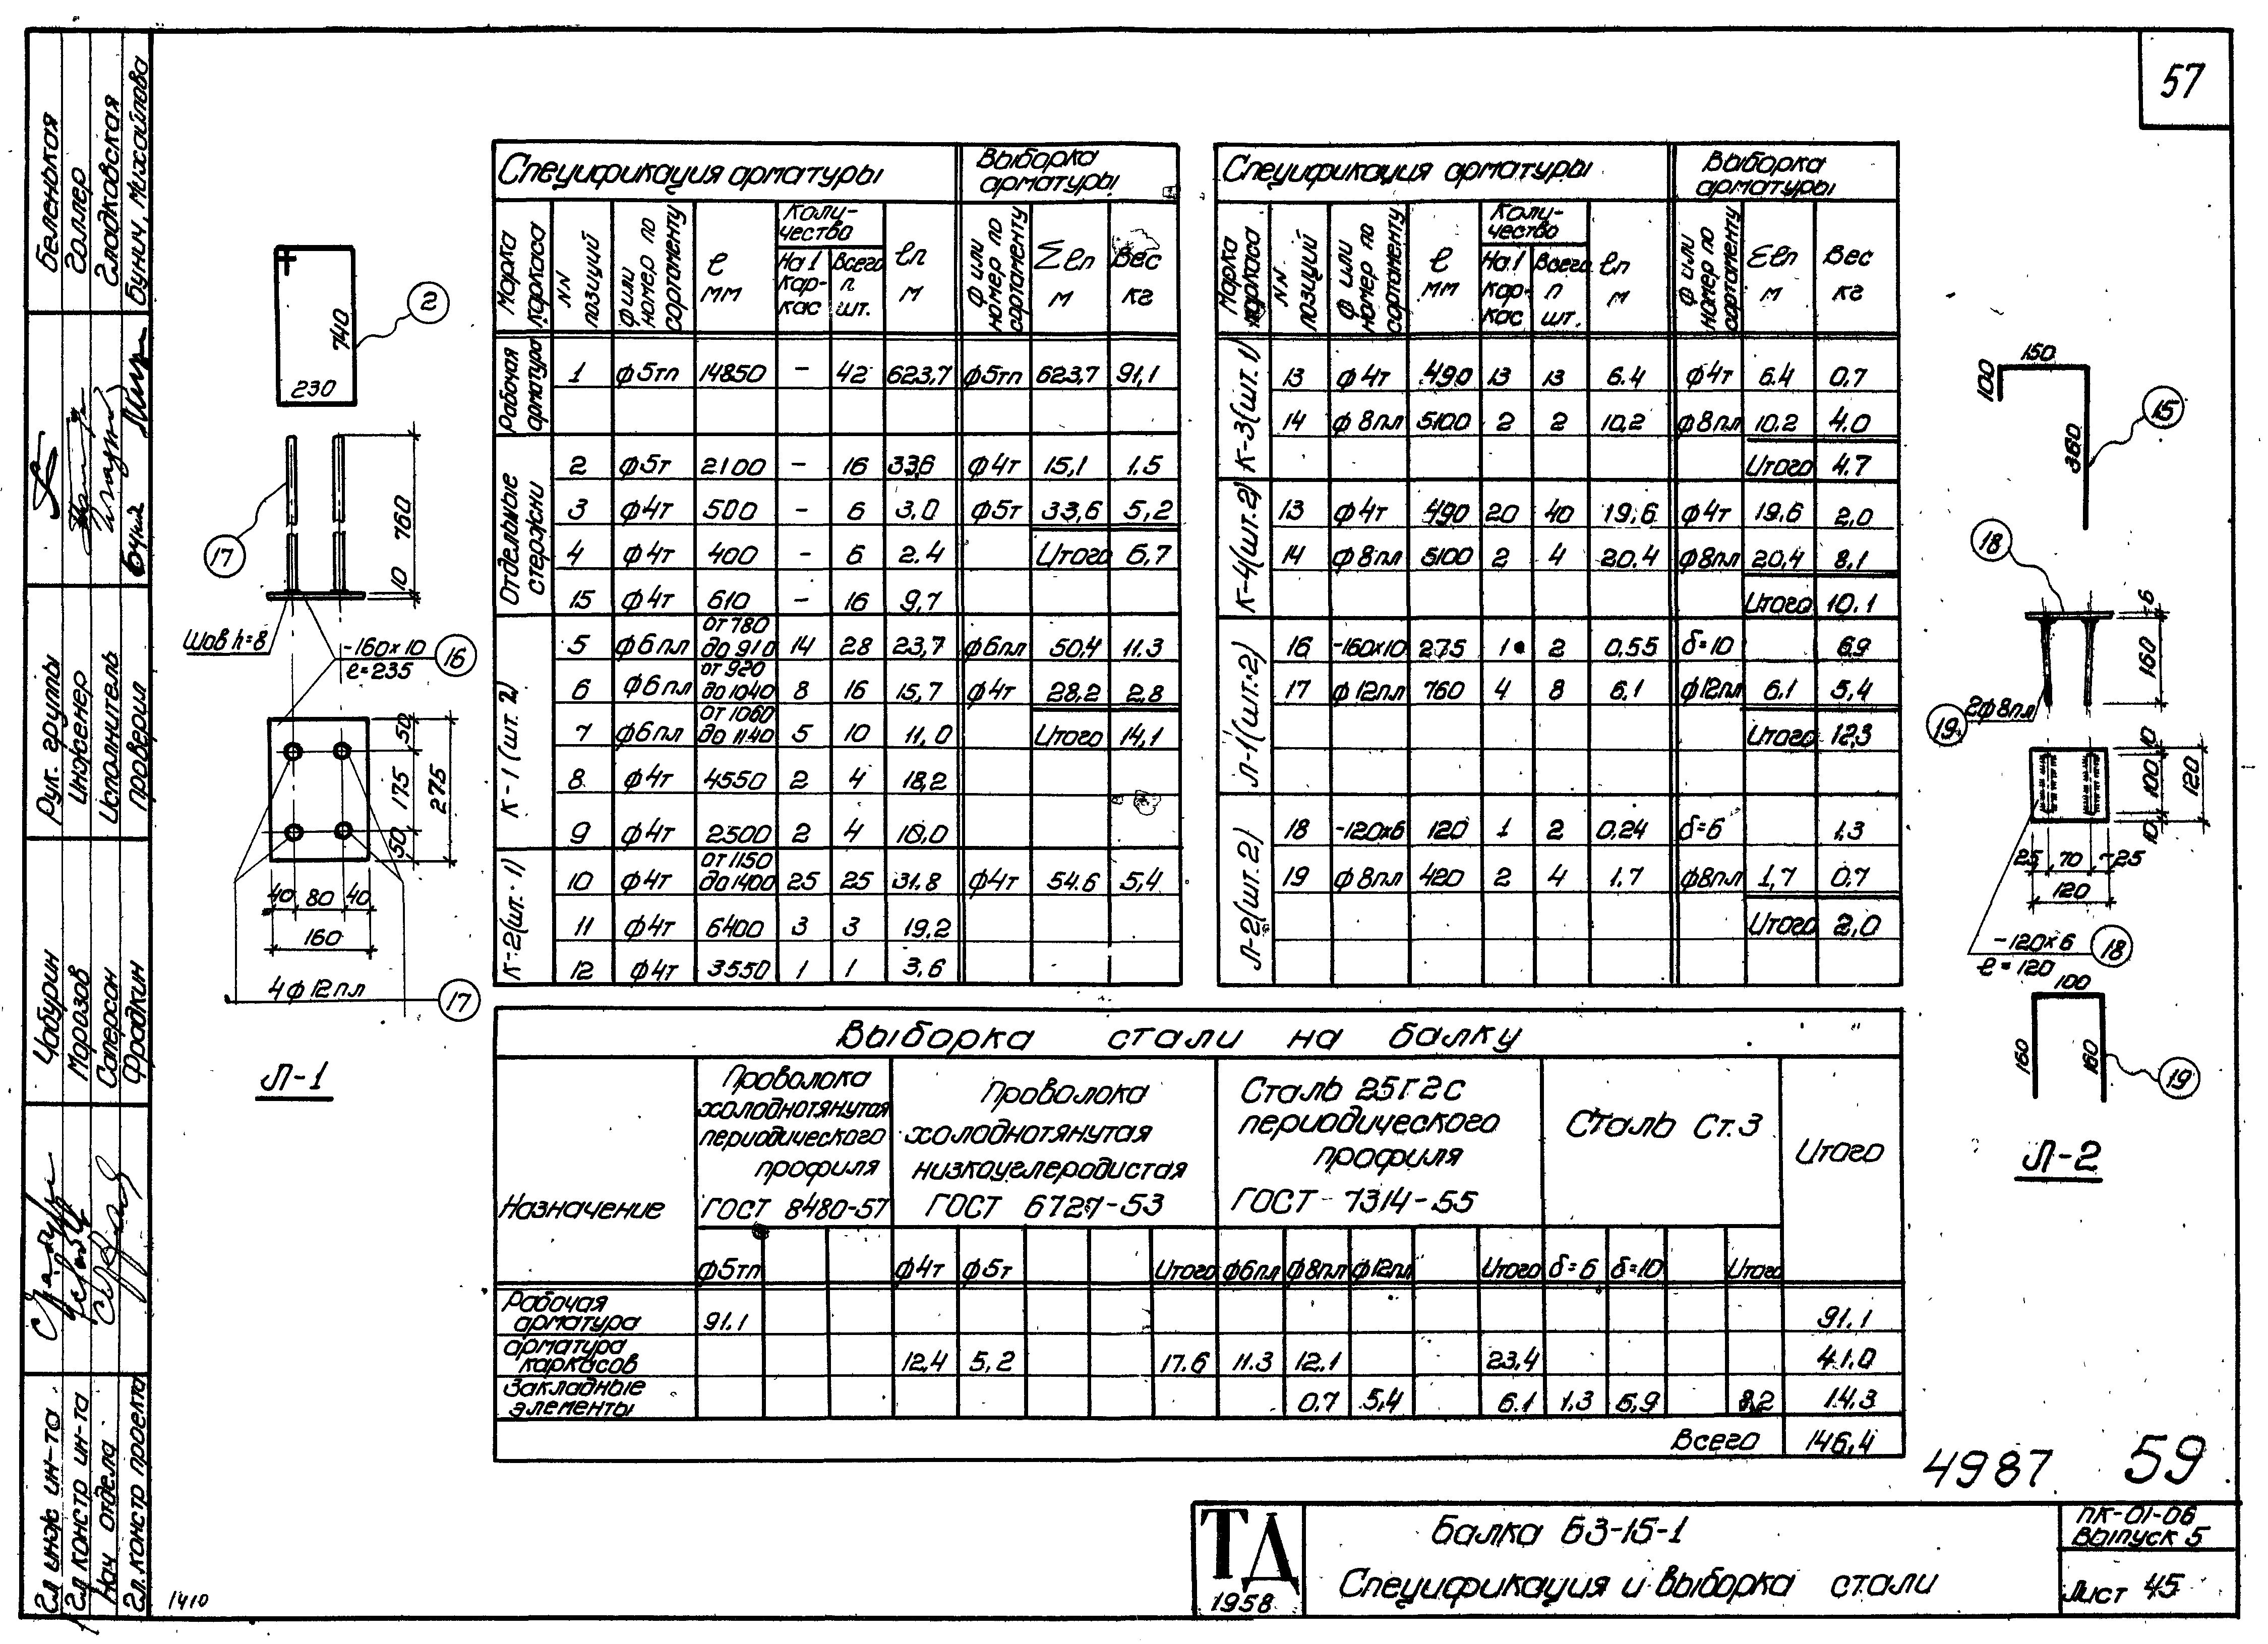 57
Беленькая
Геллер
Гладковская
Бунич, Михайлова
Рук. группы
Инженер
Исполнитель
проверил
Чабурин
Морозов
Саперсон
Фрадкин
Гл инж ин-та
Гл констр ин-та
Нач отдела
Гл. констр проекта
1410
2
740
230
17
760
10
Шов h=8
-160×10
ℓ=235
16
50
175
275
50
40 80 40
160
4ф12пл
17
Л-1
Спецификация арматуры | Выборка арматуры
Марка каркаса | NN позиций | Ф или номер по сортаменту | ℓ мм | Количество | На 1 каркас | Всего n шт. | ℓn м | Ф или номер по сортаменту | Σℓn м | Вес кг
Рабочая арматура | 1 | ф5тп | 14850 | - | 42 | 623,7 | ф5тп | 623,7 | 91,1
Отдельные стержни | 2 | ф5т | 2100 | - | 16 | 33,6 | ф4т | 15,1 | 1.5
3 | ф4т | 500 | - | 6 | 3,0 | ф5т | 33,6 | 5,2
4 | ф4т | 400 | - | 6 | 2.4 | Итого 6,7
15 | ф4т | 610 | - | 16 | 9,7
К-1 (шт. 2) | 5 | ф6пл | от 780 до 910 | 14 | 28 | 23,7 | ф6пл | 50,4 | 11.3
6 | ф6пл | от 920 до 1040 | 8 | 16 | 15,7 | ф4т | 28,2 | 2,8
7 | ф6пл | от 1060 до 1140 | 5 | 10 | 11,0 | Итого 14,1
8 | ф4т | 4550 | 2 | 4 | 18,2
9 | ф4т | 2500 | 2 | 4 | 10,0
К-2 (шт. 1) | 10 | ф4т | от 1150 до 1400 | 25 | 25 | 31.8 | ф4т | 54.6 | 5,4
11 | ф4т | 6400 | 3 | 3 | 19,2
12 | ф4т | 3550 | 1 | 1 | 3,6
Спецификация арматуры | Выборка арматуры
Марка каркаса | NN позиций | Ф или номер по сортаменту | ℓ мм | Количество | На 1 каркас | Всего n шт. | ℓn м | Ф или номер по сортаменту | Σℓn м | Вес кг
К-3 (шт. 1) | 13 | ф4т | 490 | 13 | 13 | 6.4 | ф4т | 6.4 | 0.7
14 | ф8пл | 5100 | 2 | 2 | 10,2 | ф8пл | 10.2 | 4.0
Итого 4.7
К-4 (шт. 2) | 13 | ф4т | 490 | 20 | 40 | 19,6 | ф4т | 19.6 | 2,0
14 | ф8пл | 5100 | 2 | 4 | 20.4 | ф8пл | 20,4 | 8,1
Итого 10.1
Л-1 (шт. 2) | 16 | -160×10 | 275 | 1 | 2 | 0,55 | δ=10 | 6,9
17 | ф12пл | 760 | 4 | 8 | 6.1 | ф12пл | 6.1 | 5,4
Итого 12,3
Л-2 (шт. 2) | 18 | -120×6 | 120 | 1 | 2 | 0,24 | δ=6 | 1.3
19 | ф8пл | 420 | 2 | 4 | 1.7 | ф8пл | 1,7 | 0.7
Итого 2,0
150
100
360
15
18
6
160
2ф8пл
19
10
100
120
10
25 70 25
120
-120×6
ℓ=120
18
100
160
160
19
Л-2
Выборка стали на балку
Назначение | Проволока холоднотянутая периодического профиля ГОСТ 8480-57 | Проволока холоднотянутая низкоуглеродистая ГОСТ 6727-53 | Сталь 25Г2С периодического профиля ГОСТ-7314-55 | Сталь Ст.3 | Итого
ф5тп | ф4т | ф5т | Итого | ф6пл | ф8пл | ф12пл | Итого | δ=6 | δ=10 | Итого
Рабочая арматура | 91.1 | 91.1
арматура каркасов | 12,4 | 5,2 | 17.6 | 11.3 | 12.1 | 23,4 | 41.0
Закладные элементы | 0.7 | 5,4 | 6.1 | 1,3 | 6,9 | 8,2 | 14.3
Всего | 146,4
4987 59
ТД
1958
Балка БЗ-15-1
Спецификация и выборка стали
ПК-01-06
Выпуск 5
Лист 45